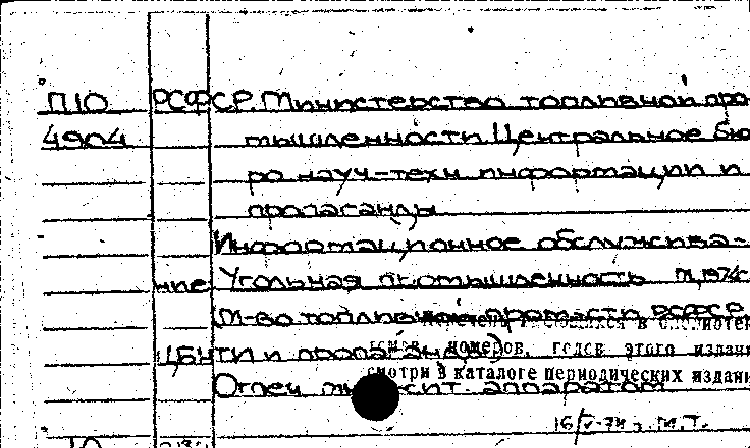 П10 РСФСР. Министерство топливной про-
4904 мышленности. Центральное бю-
ро науч-техн информации и
пропаганды
Информационное обслужива-
ние. Угольная промышленность М, 1974
М-во топливной пром-сти РСФСР.
Перечень имеющихся в библиотек
ЦБНТИ и пропаганды)
номеров, годов этого издани
смотри в каталоге периодических издани
Отпеч аппаратом
16/V-74 г. М.Т.